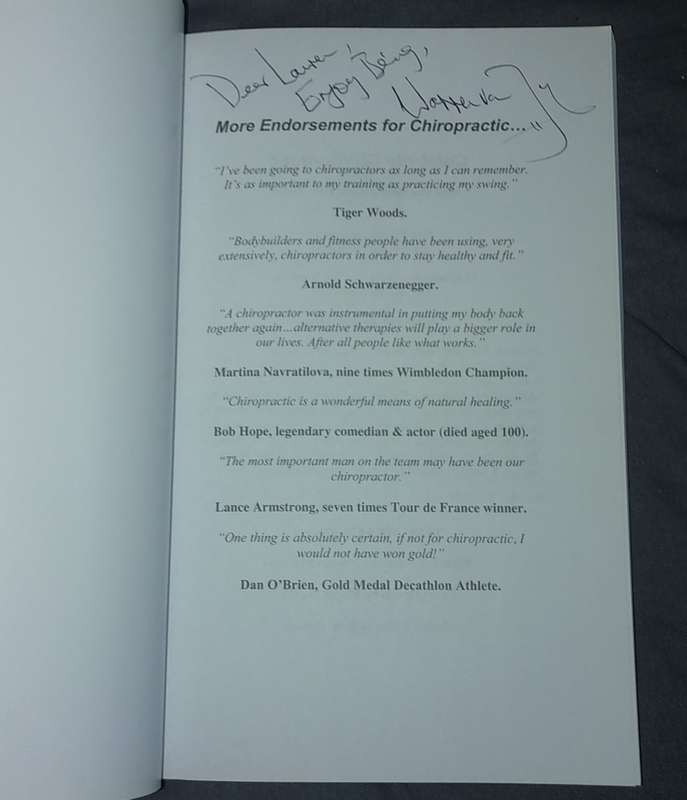 Dear
Enjoy Being,
More Endorsements for Chiropractic...
“I’ve been going to chiropractors as long as I can remember.
It’s as important to my training as practicing my swing.”
Tiger Woods.
“Bodybuilders and fitness people have been using, very
extensively, chiropractors in order to stay healthy and fit.”
Arnold Schwarzenegger.
“A chiropractor was instrumental in putting my body back
together again...alternative therapies will play a bigger role in
our lives. After all people like what works.”
Martina Navratilova, nine times Wimbledon Champion.
“Chiropractic is a wonderful means of natural healing.”
Bob Hope, legendary comedian & actor (died aged 100).
“The most important man on the team may have been our
chiropractor.”
Lance Armstrong, seven times Tour de France winner.
“One thing is absolutely certain, if not for chiropractic, I
would not have won gold!”
Dan O’Brien, Gold Medal Decathlon Athlete.